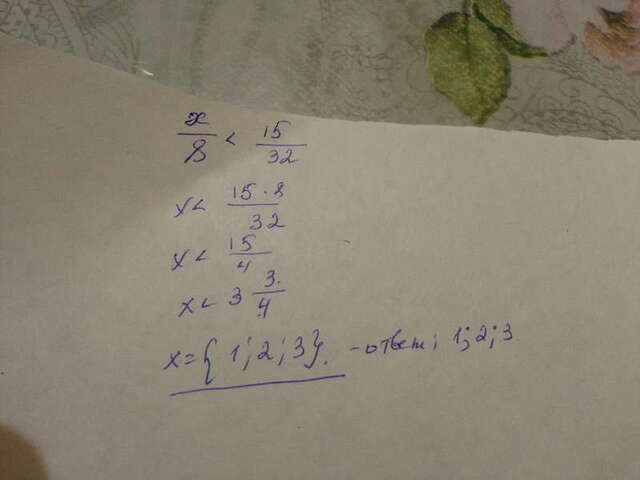 x/8 < 15/32
x < 15·8/32
x < 15/4
x < 3 3/4
x = {1; 2; 3}. – ответ; 1; 2; 3